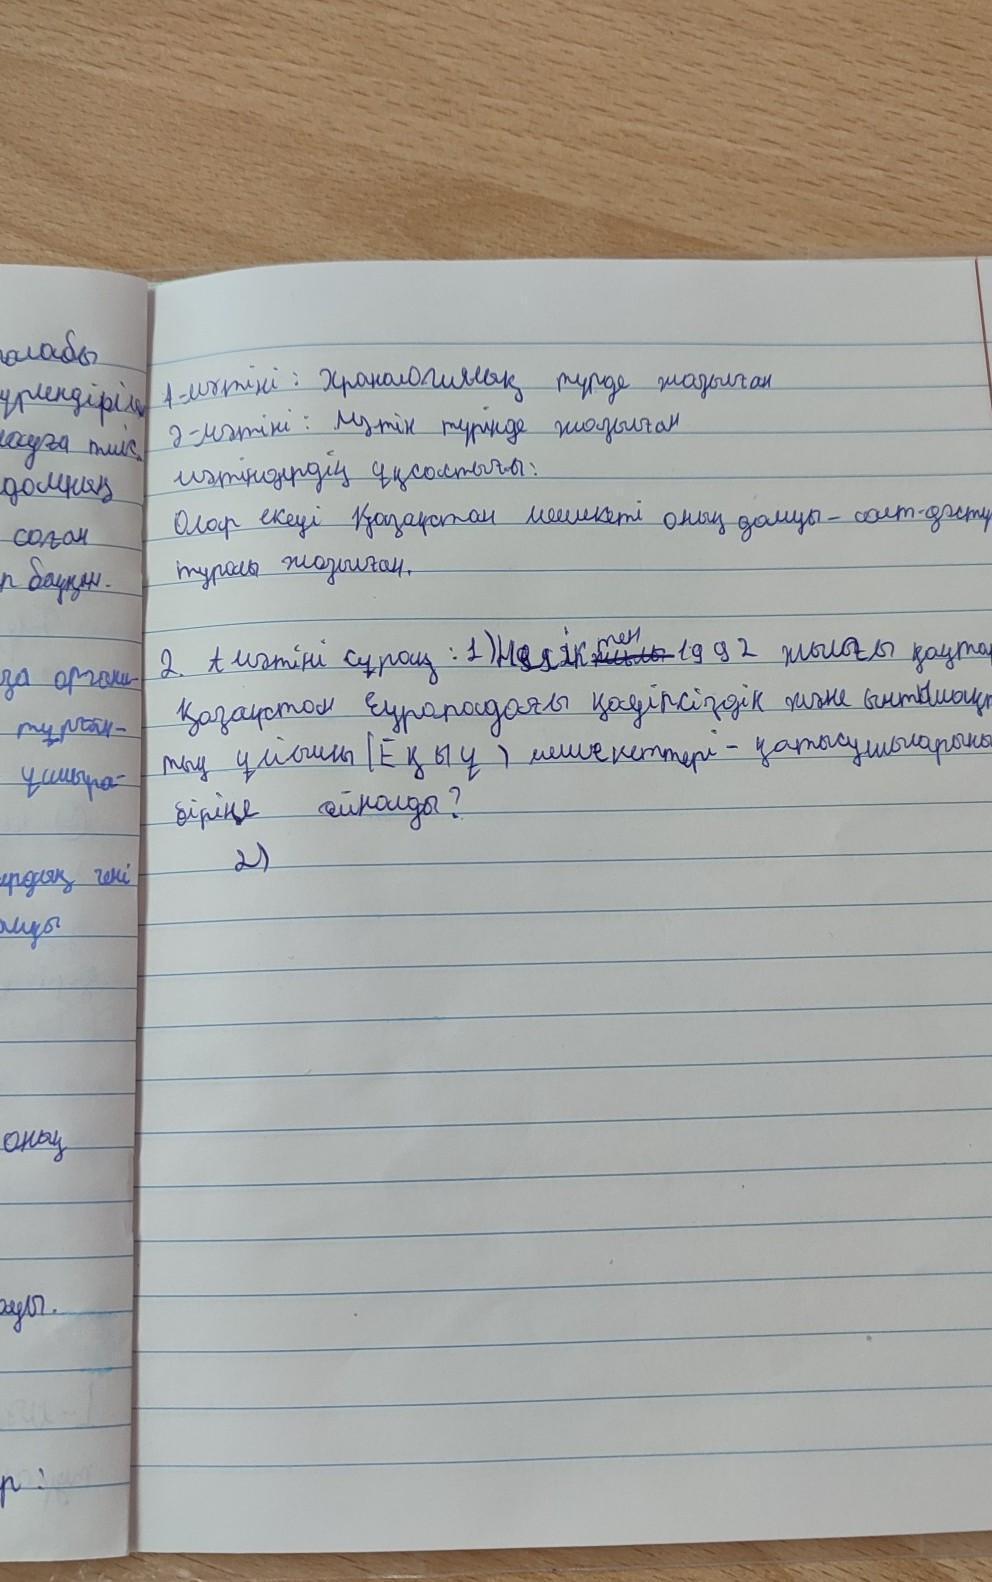 алабы
үрлендіріле
тиіс.
домның
соған
р бауқын.
за органи-
тұрған-
ұшыра-
ердің іші
оның
р :
1-мәтіні : Хроналогиялық түрде жазылған
2-мәтіні : Мәтін түрінде жазылған
мәтіндердің ұқсастығы:
Олар екеуі Қазақстан мемлекеті оның дамуы - салт-дәстү
туралы жазылған.
2. 1 мәтіні сұрақ : 1) Неліктен 1992 жылғы қаңтар
Қазақстан Еуропадағы қауіпсіздік және ынтымақт
тық ұйымы (ЕҚЫҰ) мемлекеттері - қатысушыларының
біріне айналды?
2)